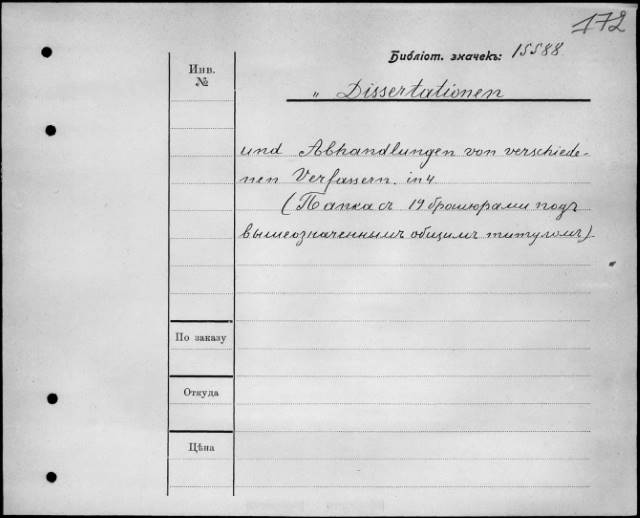 172
Библіот. значекъ: 15588
Инв.
№
„ Dissertationen
und Abhandlungen von verschiede-
nen Verfassern. in 4.
(Папка съ 19 брошюрами подъ
вышеозначеннымъ общимъ титуломъ).
По заказу
Откуда
Цѣна